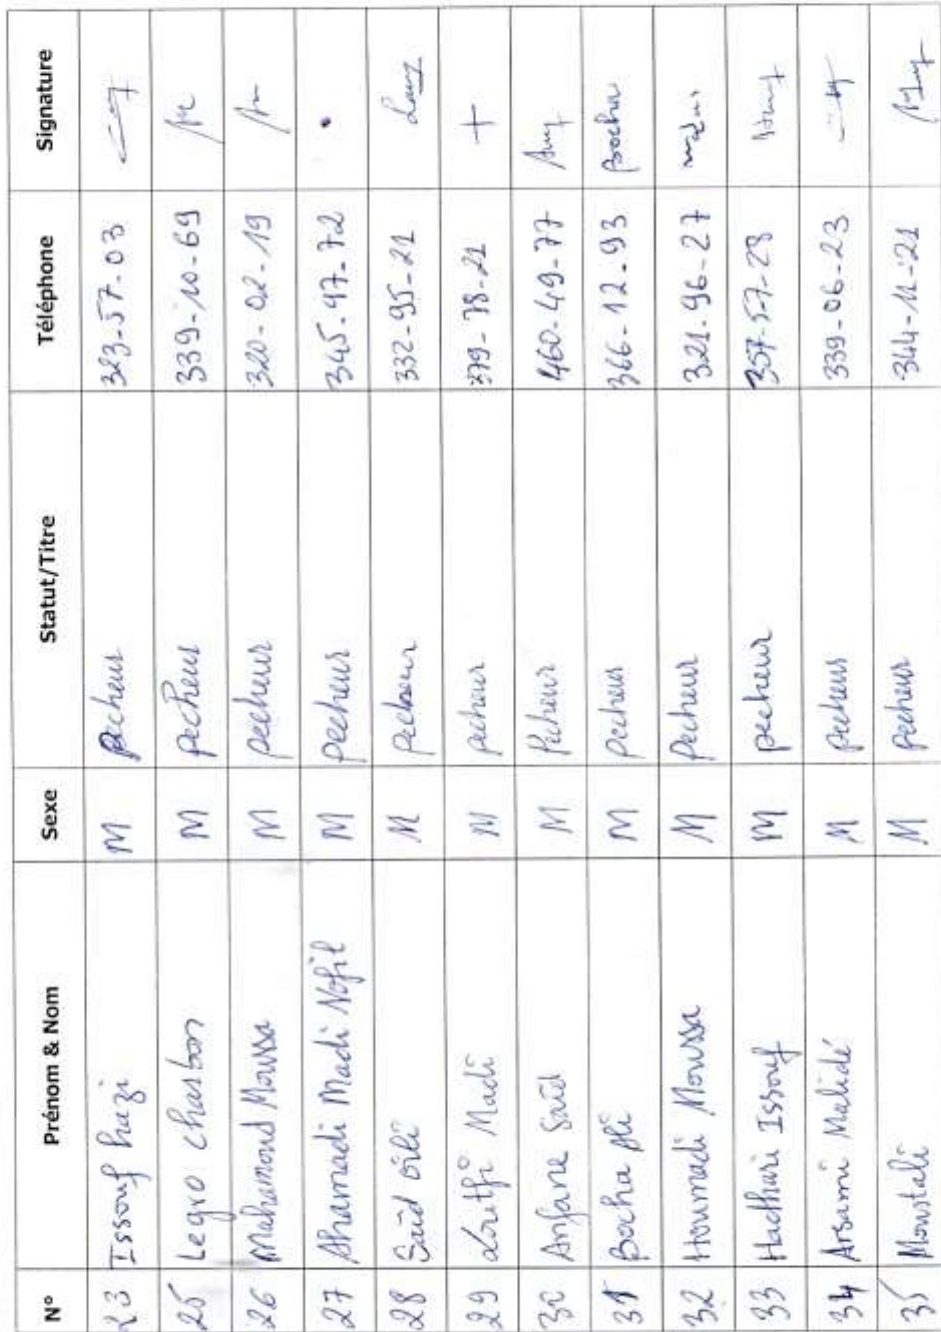 N° Prénom & Nom Sexe Statut/Titre Téléphone Signature
23 Issouf hazi M pecheur 323-57-03
25 Legro charbon M pecheur 339-10-69
26 Mahamoud Moussa M pecheur 320-02-19
27 Ahamadi Madi Nofil M pecheur 345-97-72
28 Said M pecheur 332-95-21
29 Loutfi Madi M pecheur 379-78-21 +
30 Anfane Said M Pecheur 460-49-77
31 Bocha Ali M pecheur 366-12-93 Bocha
32 Houmadi Moussa M pecheur 321-96-27
33 Hadhari Issouf M pecheur 357-57-28
34 Arsami Malidé M pecheur 339-06-23
35 Moustali M pecheur 344-11-21